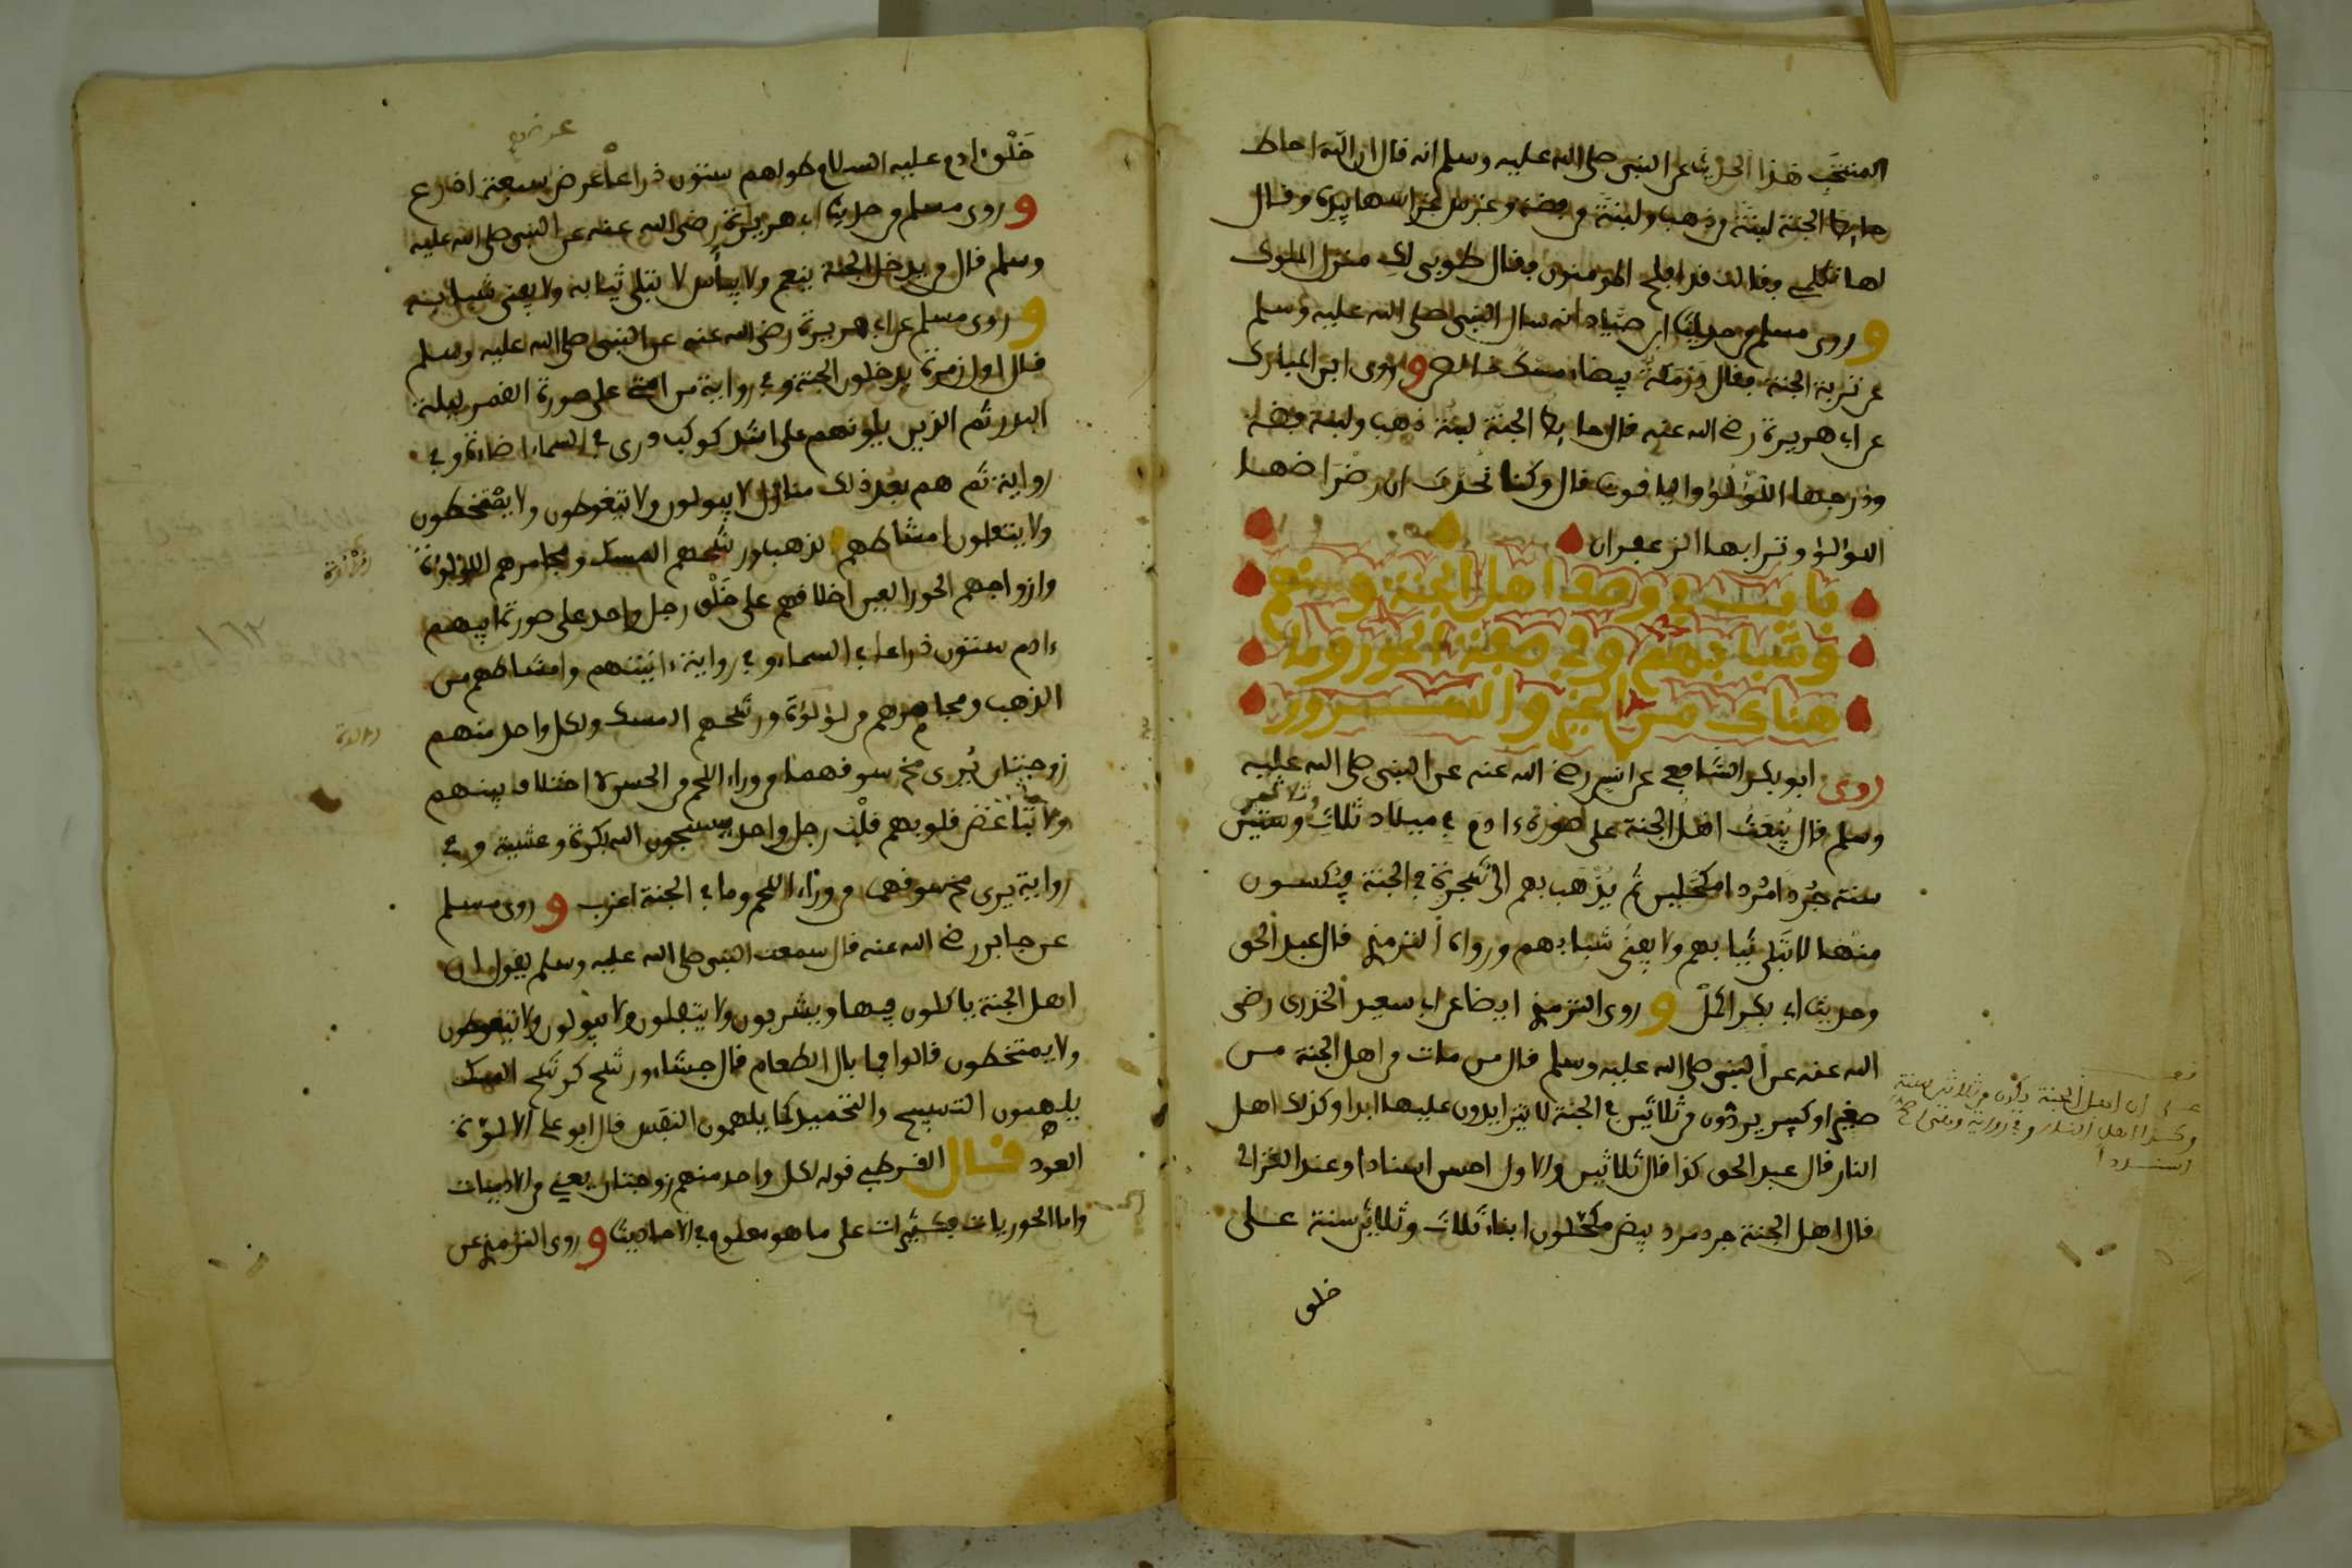 المنتخب هذا الحديث عن النبي صلى الله عليه وسلم انه قال ان الله احاط
حايط الجنة لبنة من ذهب ولبنة من فضة وغرس غراسها بيده وقال
لها تكلمي فقالت قد افلح المومنون فقال طوبى لك منزل الملوك
وروى مسلم من حديث ابن صياد انه سال النبي صلى الله عليه وسلم
عن تربة الجنة فقال درمكة بيضاء مسك خالص وروى ابن المبارك
عن ابي هريرة رضي الله عنه قال حايط الجنة لبنة ذهب ولبنة فضة
ودرجها اللؤلؤ والياقوت قال وكنا نحدث ان رضراضها
اللؤلؤ وترابها الزعفران
باب في وصف اهل الجنة وسنهم
وشبابهم وفي صفة الحور وما
هناك من الخير والسرور
روى ابو بكر الشافعي عن انس رضي الله عنه عن النبي صلى الله عليه
وسلم قال يبعث اهل الجنة على صورة ءادم في ميلاد ثلاث وستين
وثلاثين
سنة جردا مردا مكحلين ثم يذهب بهم الى شجرة في الجنة فيكسون
منها لا تبلى ثيابهم ولا يفنى شبابهم ورواه الترمذي قال عبد الحق
وحديث ابي بكر اكمل وروى الترمذي ايضا عن ابي سعيد الخدري رضي
الله عنه عن النبي صلى الله عليه وسلم قال من مات من اهل الجنة من
صغير او كبير يردون من ثلاثين في الجنة لا يتزايدون عليها ابدا وكذلك اهل
النار قال عبد الحق كذا قال ثلاثين والاول احسن اسنادا وعند الغزالي
قال اهل الجنة جرد مرد بيض مكحلون ابناء ثلاث وثلاثين سنة على
خلق
على ان اهل الجنة يردون من ثلاثين سنة
وكذا اهل النار وفي رواية
اسنادا
خلق ءادم عليه السلام طولهم ستون ذراعا عرض سبعة اذرع
وروى مسلم من حديث ابي هريرة رضي الله عنه عن النبي صلى الله عليه
وسلم قال من يدخل الجنة ينعم ولا يبأس لا تبلى ثيابه ولا يفنى شبابه
وروى مسلم عن ابي هريرة رضي الله عنه عن النبي صلى الله عليه وسلم
قال اول زمرة يدخلون الجنة وفي رواية من امتي على صورة القمر ليلة
البدر ثم الذين يلونهم على اشد كوكب دري في السماء اضاءة وفي
رواية ثم هم بعد ذلك منازل لا يبولون ولا يتغوطون ولا يمتخطون
ولا يتفلون امشاطهم الذهب ورشحهم المسك ومجامرهم اللؤلؤة
وازواجهم الحور العين اخلاقهم على خلق رجل واحد على صورة ابيهم
ءادم ستون ذراعا في السماء وفي رواية ءانيتهم وامشاطهم من
الذهب ومجامرهم من لؤلؤة ورشحهم المسك ولكل واحد منهم
زوجتان يرى مخ سوقهما من وراء اللحم من الحسن لا اختلاف بينهم
ولا تباغض قلوبهم قلب رجل واحد يسبحون الله بكرة وعشية وفي
رواية يرى مخ سوقهما من وراء اللحم وما في الجنة اعزب وروى مسلم
عن جابر رضي الله عنه قال سمعت النبي صلى الله عليه وسلم يقول ان
اهل الجنة ياكلون فيها ويشربون ولا يتفلون ولا يبولون ولا يتغوطون
ولا يمتخطون قالوا فما بال الطعام قال جشاء ورشح كرشح المسك
يلهمون التسبيح والتحميد كما يلهمون النفس قال ابو علي الالوة
العود قال القرطبي قوله لكل واحد منهم زوجتان يعني من الادميات
واما الحوريات فكثيرات على ما هو معلوم في الاحاديث وروى الترمذي عن